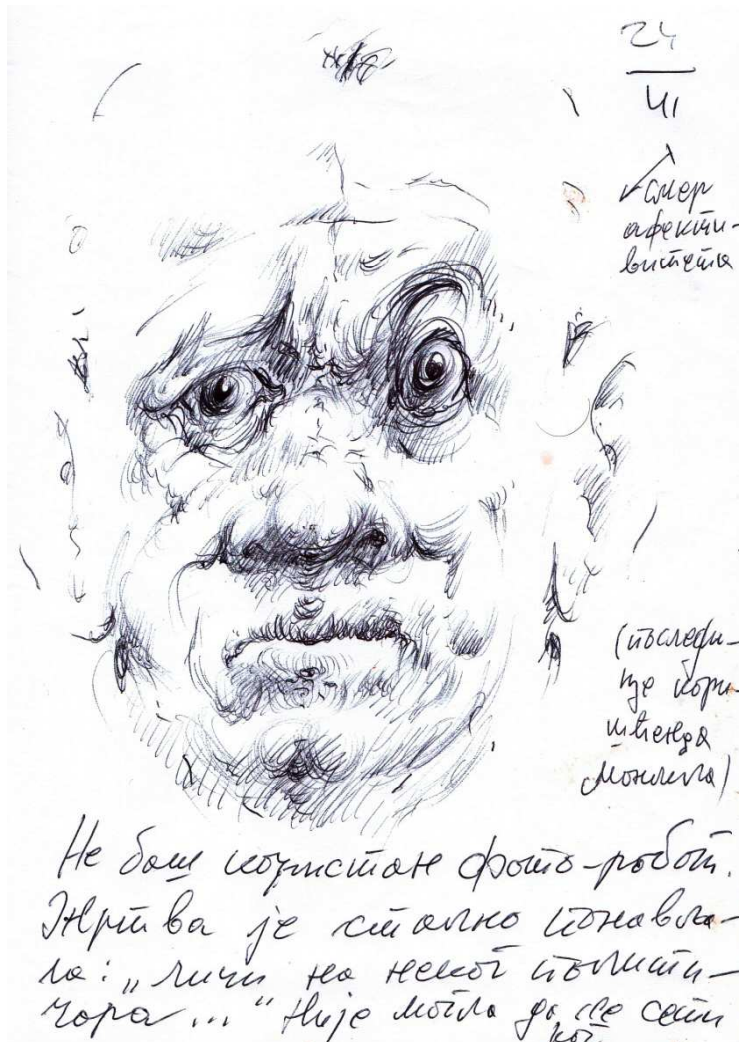 24
41
смер
афекти-
витета
(последи-
це кори-
шћења
)
Не баш користан фото-робот.
Жртва је стално понавља-
ла: „личи на неког полити-
чара..." Није могла да се сети
ког